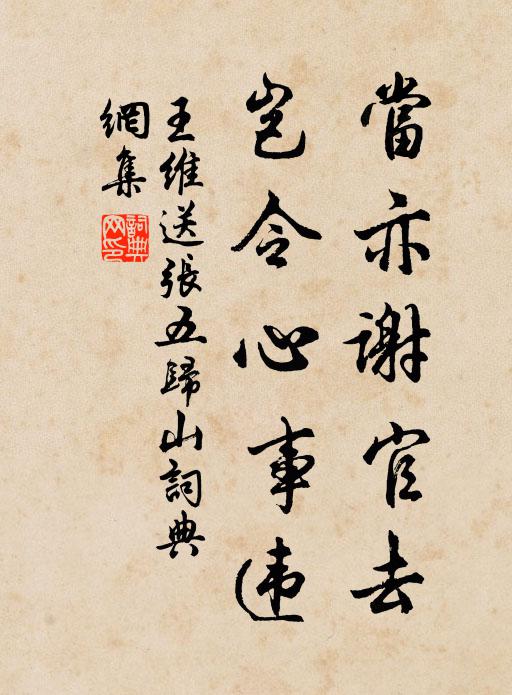 當亦謝官去
豈令心事違
王維送張五歸山詞典
網集
詞典網印